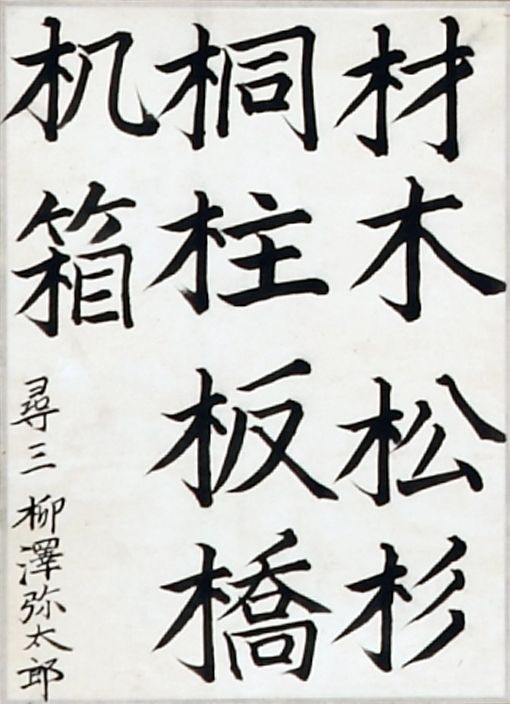 材木松杉
桐柱板橋
机箱
尋三 柳澤弥太郎